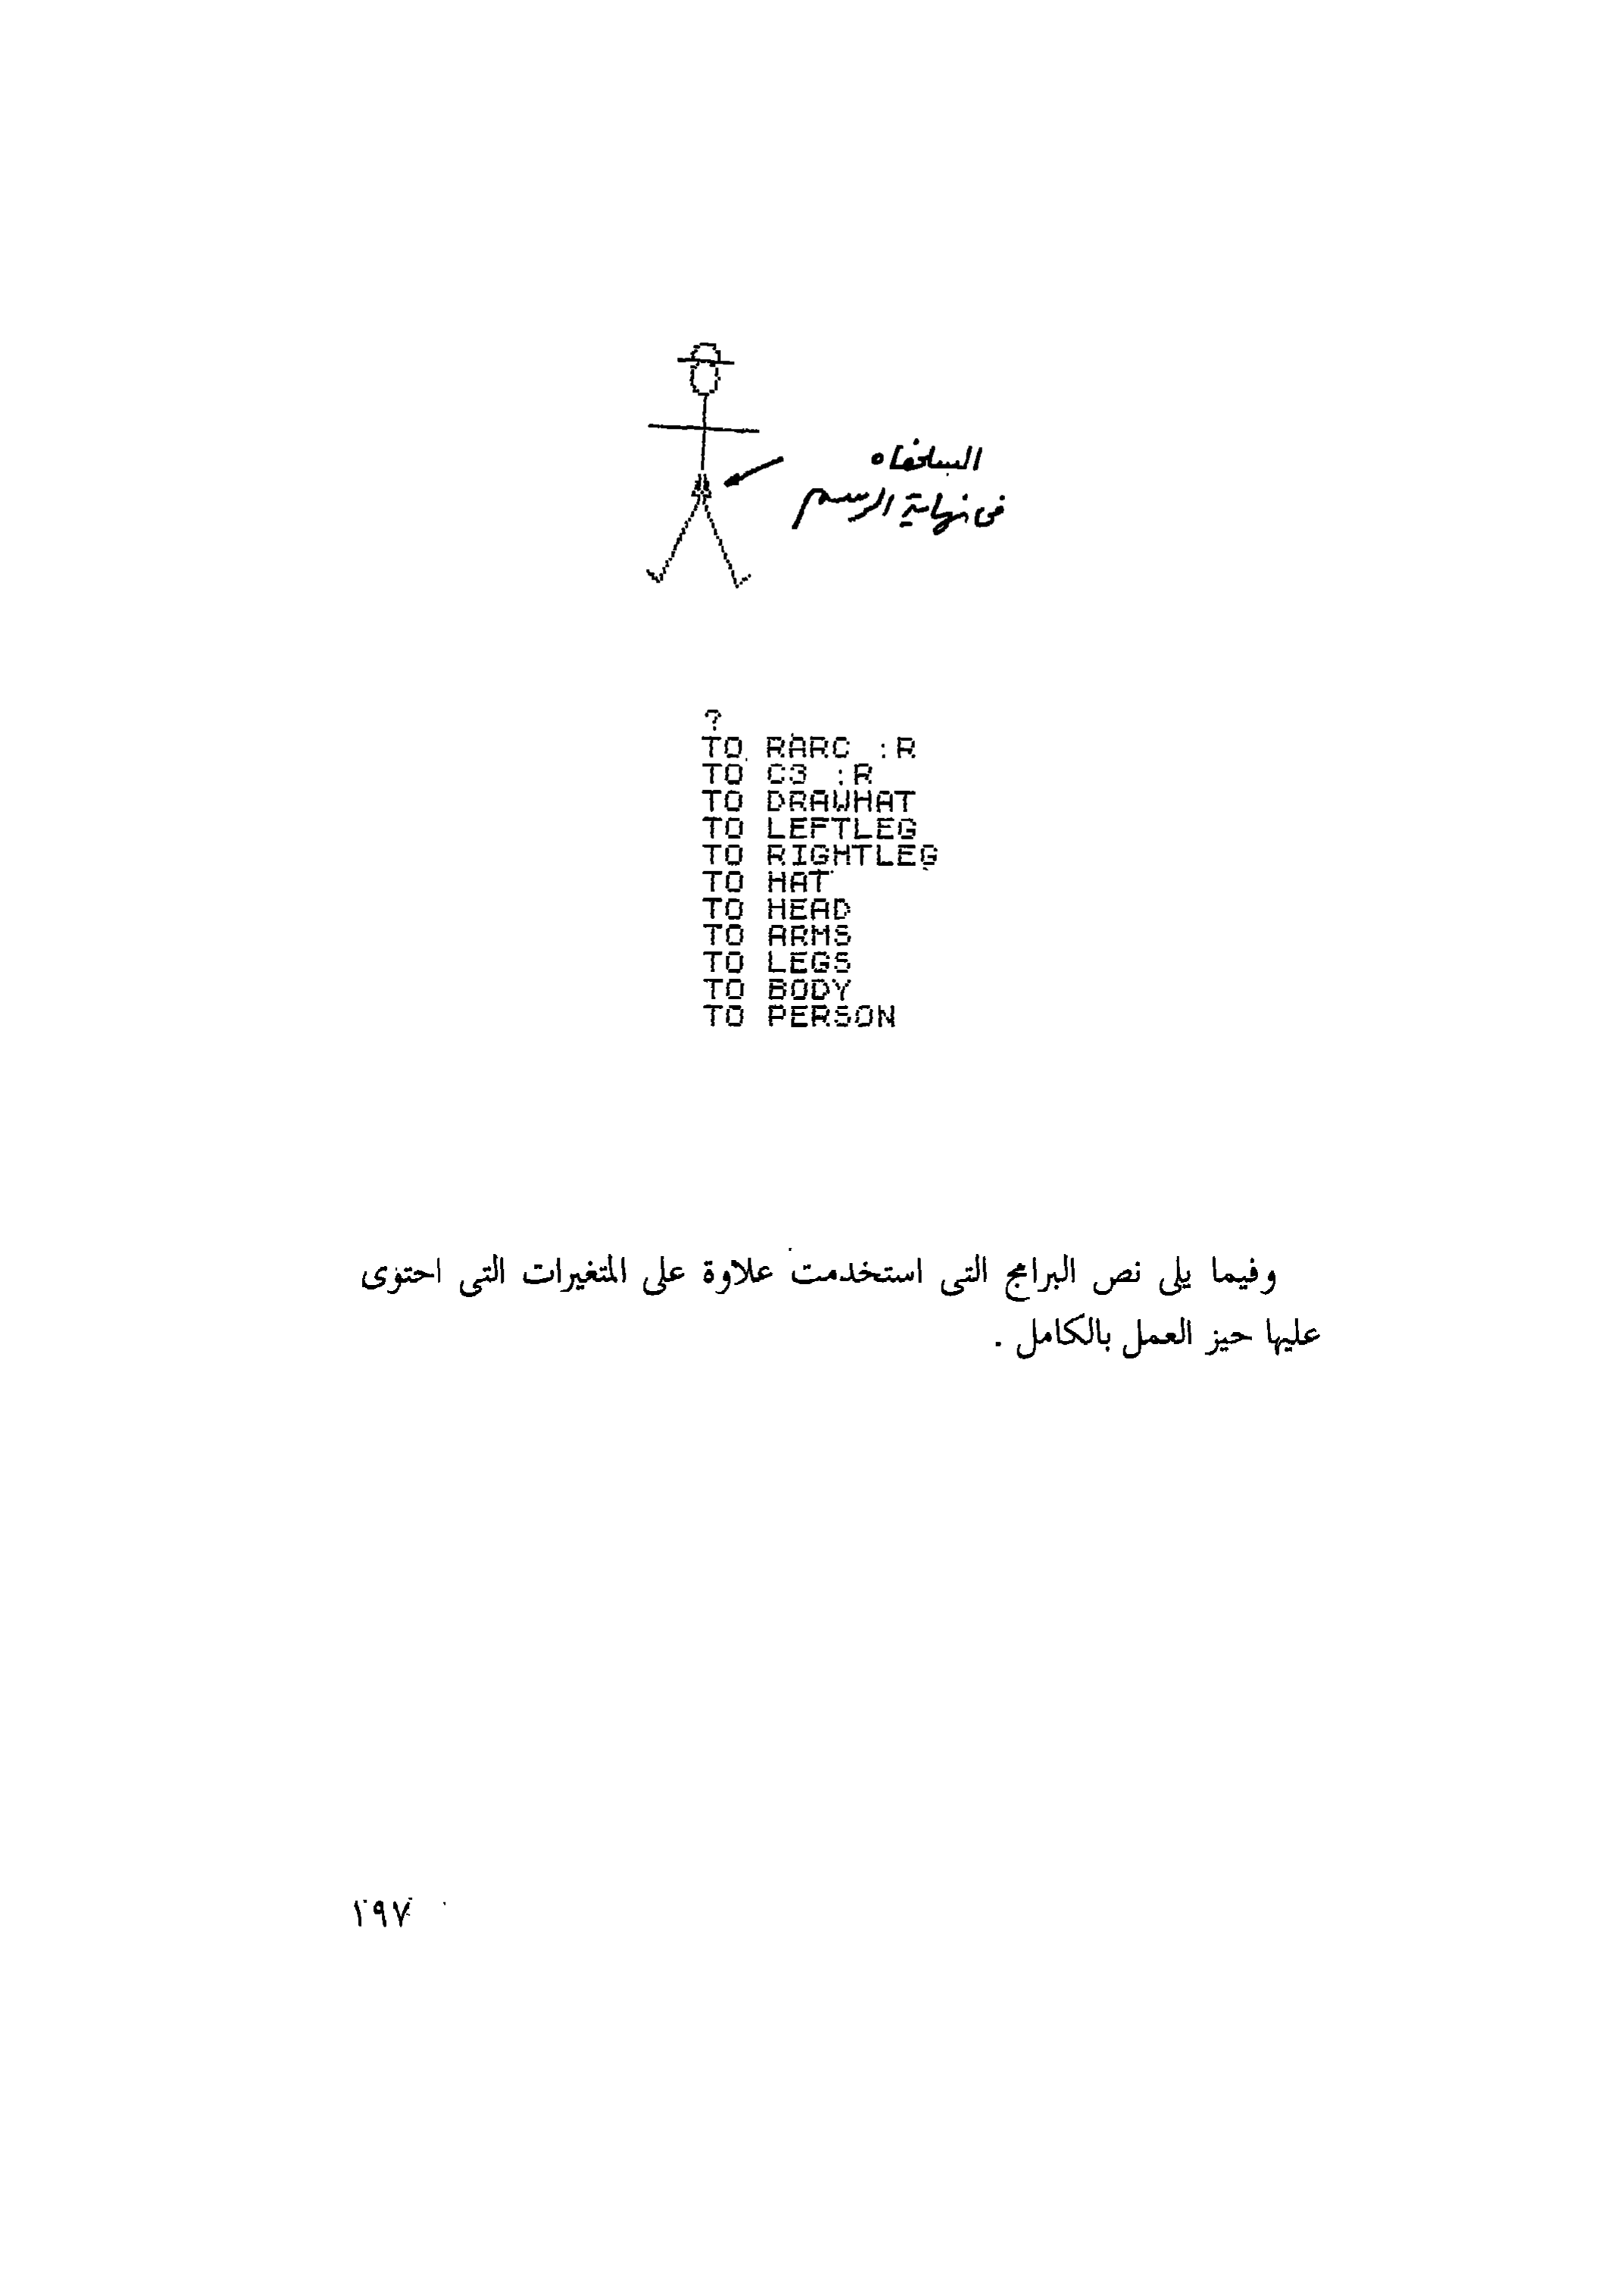 السلحفاه
فى نهاية الرسم
?
TO RARC :R
TO C3 :R
TO DRAWHAT
TO LEFTLEG
TO RIGHTLEG
TO HAT
TO HEAD
TO ARMS
TO LEGS
TO BODY
TO PERSON
وفيما يلى نص البرامج التى استخدمت علاوة على المتغيرات التى احتوى
عليها حيز العمل بالكامل .
١٩٧